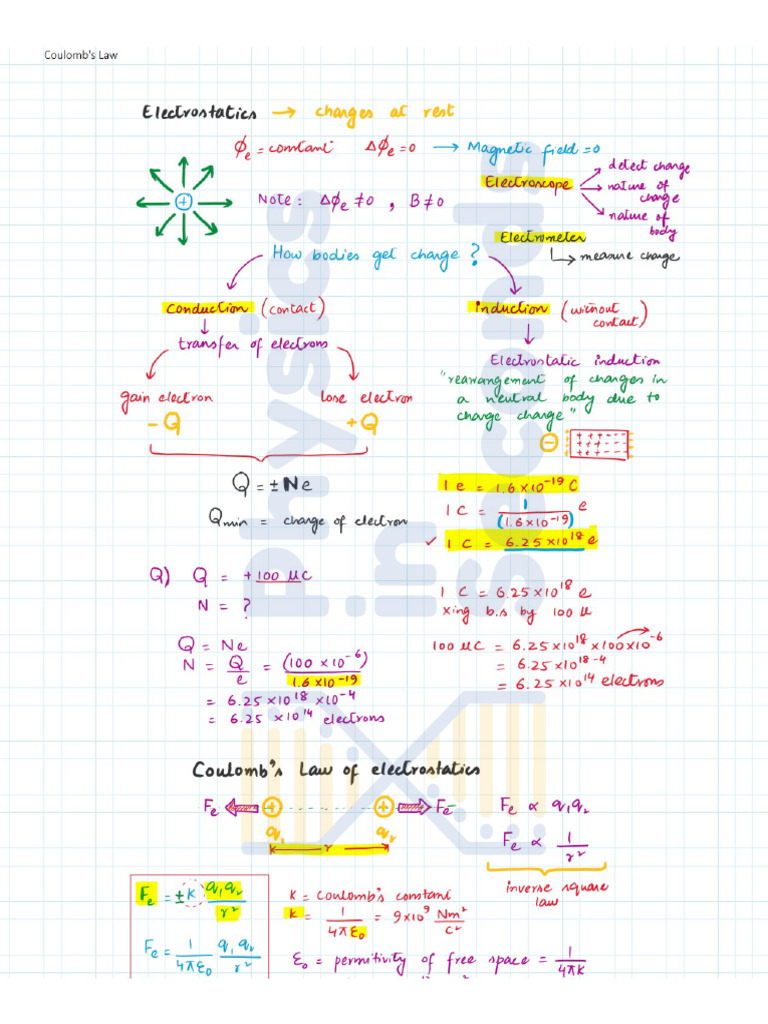 Coulomb's Law
Electrostatics → charges at rest
ϕe = constant Δϕe = 0 → Magnetic field = 0
Electroscope
detect charge
nature of charge
nature of body
+
Note: Δϕe ≠ 0 , B ≠ 0
Electrometer
measure charge
How bodies get charge?
Conduction (contact)
transfer of electrons
gain electron
lose electron
-Q
+Q
Induction (without
contact)
Electrostatic induction
"rearrangement of charges in
a neutral body due to
charge charge"
− + + + - - -
Q = ± Ne
Qmin = charge of electron
1 e = 1.6×10⁻¹⁹ C
1 C = 1/(1.6×10⁻¹⁹) e
✓ 1 C = 6.25×10¹⁸ e
Q) Q = +100 μC
N = ?
Q = Ne
N = Q/e = (100×10⁻⁶)/1.6×10⁻¹⁹
= 6.25×10¹⁸×10⁻⁴
= 6.25 ×10¹⁴ electrons
1 C = 6.25×10¹⁸ e
xing b.s by 100 μ
100 μC = 6.25×10¹⁸×100×10⁻⁶
= 6.25×10¹⁸⁻⁴
= 6.25×10¹⁴ electrons
Physics
in
Seconds
Coulomb's Law of electrostatics
Fe + + Fe
q₁ q₂
r
Fe ∝ q₁q₂
Fe ∝ 1/r²
inverse square
law
Fe = ±k q₁q₂/r²
Fe = 1/4πε₀ q₁q₂/r²
k = Coulomb's constant
k = 1/4πε₀ = 9×10⁹ Nm²/C²
ε₀ = permitivity of free space = 1/4πk